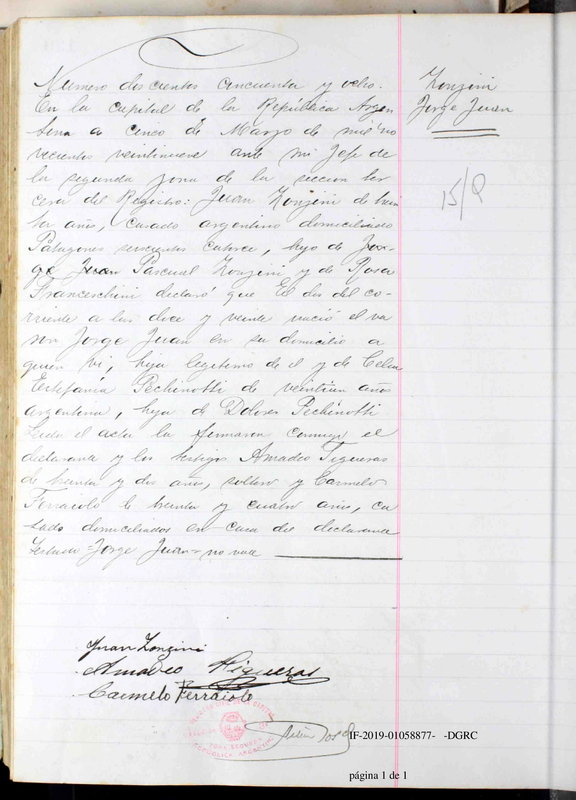 Numero doscientos cincuenta y ocho.
En la capital de la República Argen
tina a cinco de Marzo de mil no
vecientos veintinueve ante mi Jefe de
la segunda zona de la seccion ter
cera del Registro: Juan Zonzini de trein
ta años, casado argentino domiciliado
Patagones seiscientos catorce, hijo de Jor
ge Juan Pascual Zonzini y de Rosa
Franceschini declaró que El dos del co-
rriente a las doce y veinte nació el va
ron Jorge Juan en su domicilio a
quien vi, hijo legitimo de el y de Celia
Estefanía Pechinotti de veintiun años
argentina, hija de Dolores Pechinotti
Leida el acta la firmaron conmigo el
declarante y los testigos Amadeo Figueras
de treinta y dos años, soltero y Carmelo
Ferraiolo de treinta y cuatro años, ca
sado domiciliados en casa del declarante
Testado = Jorge Juan = no vale
Zonzini
Jorge Juan
15/9
Juan Zonzini
Amadeo Figueras
Carmelo Ferraiolo
REPUBLICA ARGENTINA
IF-2019-01058877- -DGRC
página 1 de 1